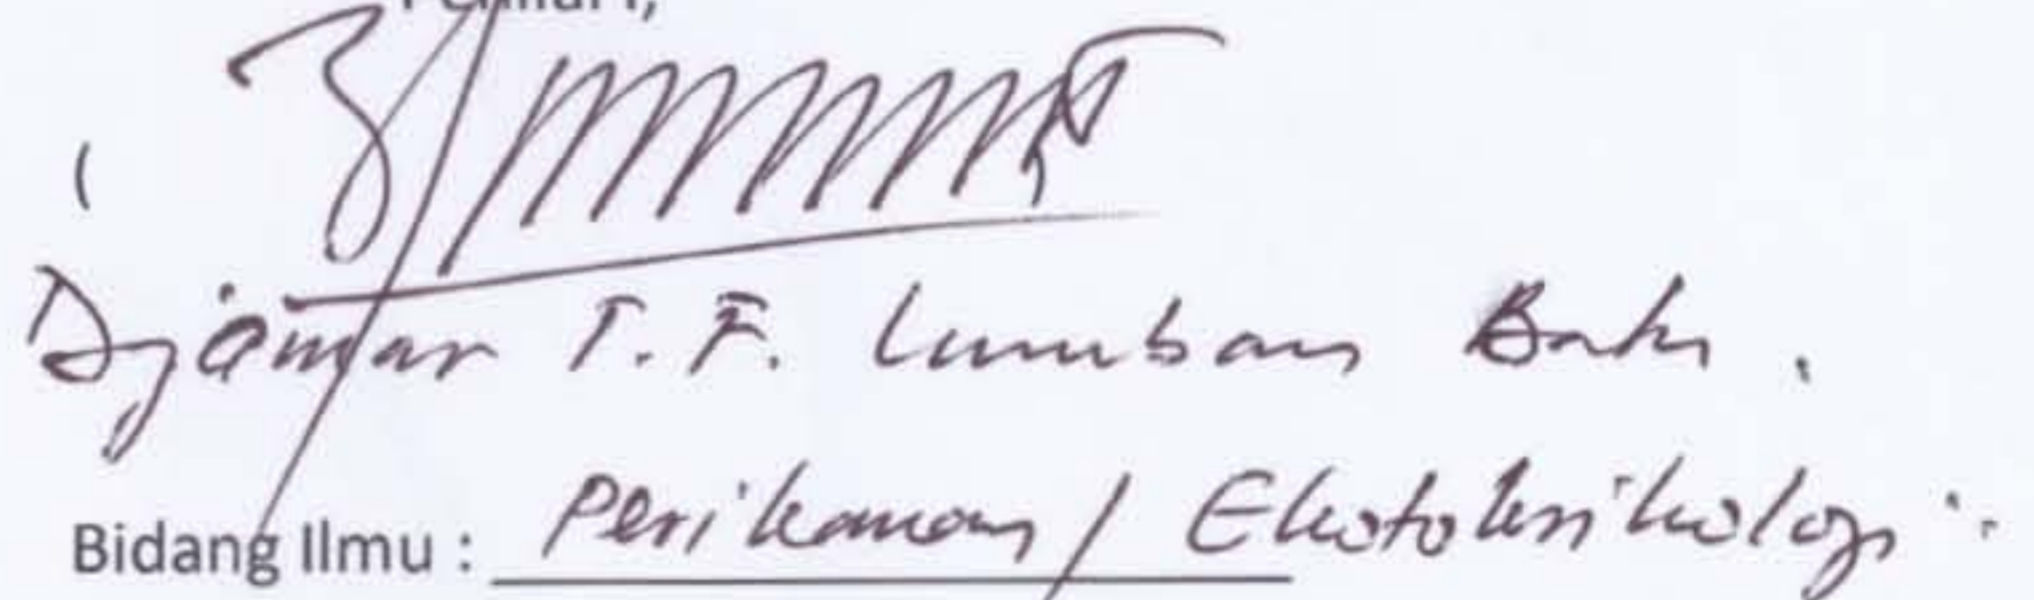 (
Djamar T. F. Lumban Batu.
Bidang Ilmu : Perikanan / Ekotoksikologi.